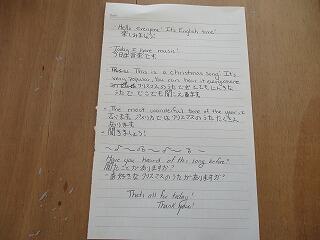 Hello everyone! It's English time!
楽しみましょう!
Today I have music!
今日は音楽です
This is a christmas song. It's
very popular. You can hear it everywhere
クリスマスのうたで
うたで どこでも 聞こえます
- The most wonderful time of the year is
アメリカではクリスマスのうたたくさん
あります
- 聞きましょう!
Have you heard of this song before?
聞いたことがありますか?
一番好きなクリスマスのうたがありますか?
That's all for today!
Thank you!